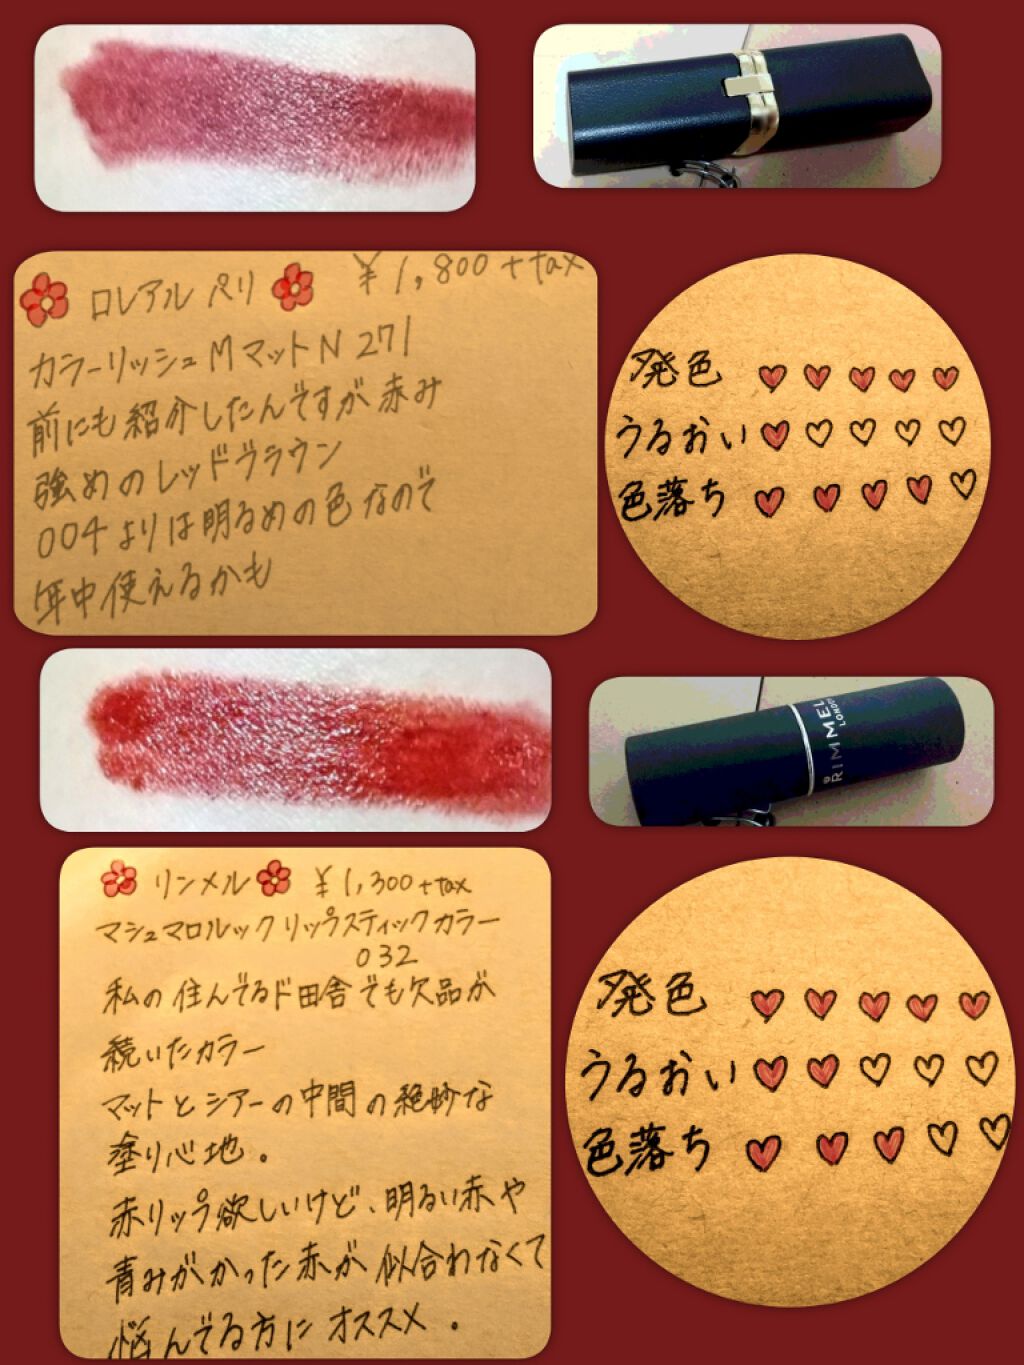 ロレアル パリ ¥1,800+tax
カラーリッシュ M マット N 271
前にも紹介したんですが赤み
強めのレッドブラウン
004よりは明るめの色なので
年中使えるかも
発色 ♥♥♥♥♥
うるおい ♥♡♡♡♡
色落ち ♥♥♥♥♡
RIMMEL
LONDON
リンメル ¥1,300+tax
マシュマロルック リップスティックカラー
032
私の住んでるド田舎でも欠品が
続いたカラー
マットとシアーの中間の絶妙な
塗り心地。
赤リップ欲しいけど、明るい赤や
青みがかった赤が似合わなくて
悩んでる方にオススメ。
発色 ♥♥♥♥♥
うるおい ♥♥♡♡♡
色落ち ♥♥♥♡♡